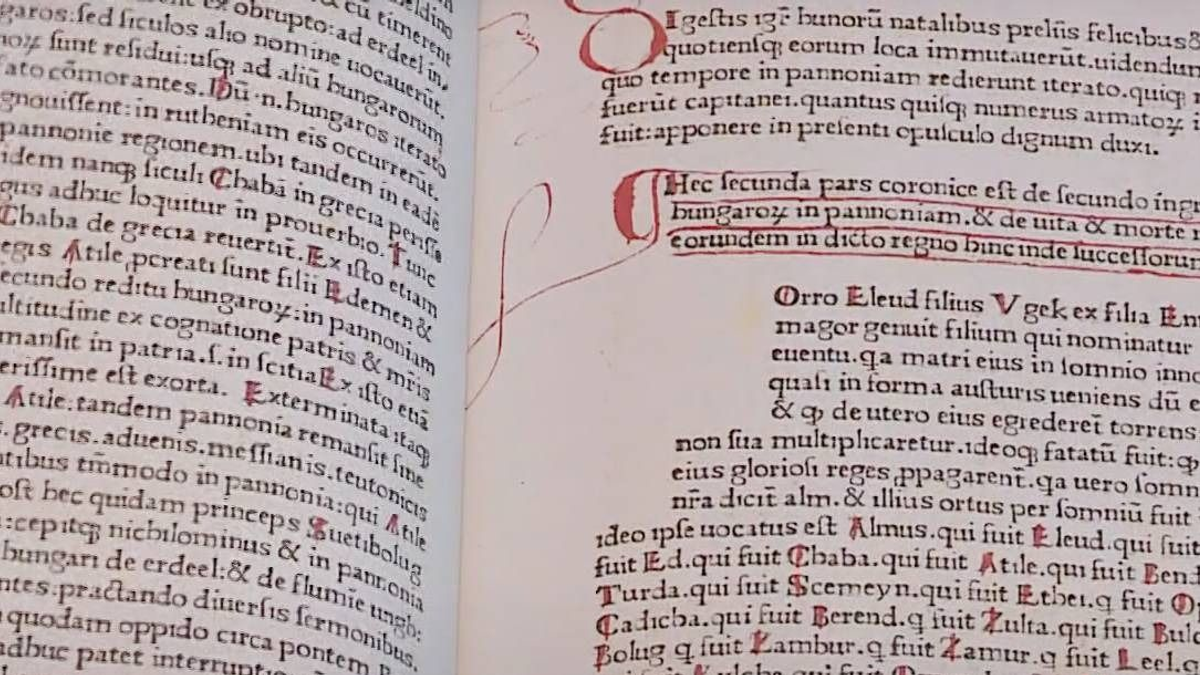 timerent
ex obrupto:ad erdeel in,
garos:sed siculos alio nomine uocauerūt.
noꝝ sunt residui:usqꝫ ad aliū hungarorum
fato cōmorantes. Dū .n. hungaros iterato
gnouissent: in rutheniam eis occurrerūt.
pannonie regionem.ubi tandem in eadē
idem nanqꝫ siculi Chabā in grecia perisse
gus adhuc loquitur in prouerbio. Tunc
Chaba de grecia reuertit̄. Ex isto etiam
egis Atile ꝓcreati sunt filii Edemen &
ecundo reditu hungaroꝝ:in pannoniam
ultitudine ex cognatione patris & mr̄is
mansit in patria.s. in scitia Ex isto etiā
erissime est exorta. Exterminata itaqꝫ
Atile:tandem pannonia remansit sine
s.grecis.aduenis.messianis.teutonicis
ntibus tm̄modo in pannonia:qui Atile
ost hec quidam princeps Suetibolug
:cepitqꝫ nichilominus & in pannonia
hungari de erdeel:& de flumīe ungh:
ntes.practando diuersis sermonibus.
quodam oppido circa pontem
adhuc patet interrupti
Digestis igr̄ hunorū natalibus preliis felicibus &
quotiensqꝫ eorum loca immutauerūt.uidendum
quo tempore in pannoniam redierunt iterato.quiqꝫ
fuerūt capitanei.quantus quisqꝫ numerus armatoꝝ
fuit:apponere in presenti opusculo dignum duxi.
Hec secunda pars coronice est de secundo ingr
hungaroꝝ in pannoniam.& de uita & morte
eorundem in dicto regno hinc inde successorum
Orro Eleud filius Vgek ex filia En
magor genuit filium qui nominatur
euentu.qa matri eius in somnio inno
quasi in forma austuris ueniens dū e
& qꝫ de utero eius egrederet̄ torrens
non sua multiplicaretur.ideoqꝫ fatatū fuit:qꝫ
eius gloriosi reges ꝓpagarent̄.qa uero somn
nr̄a dicit̄ alm.& illius ortus per somniū fuit
ideo ipse uocatus est Almus.qui fuit Eleud.qui fuit
fuit Ed.qui fuit Chaba.qui fuit Atile.qui fuit Bend
Turda.qui fuit Scemeyn.qui fuit Ethei.q fuit O
Cadicha.qui fuit Berend.q fuit Zulta.qui fuit Bulc
Bolug q fuit Zambur.q fuit Zamur.q fuit Leel.q